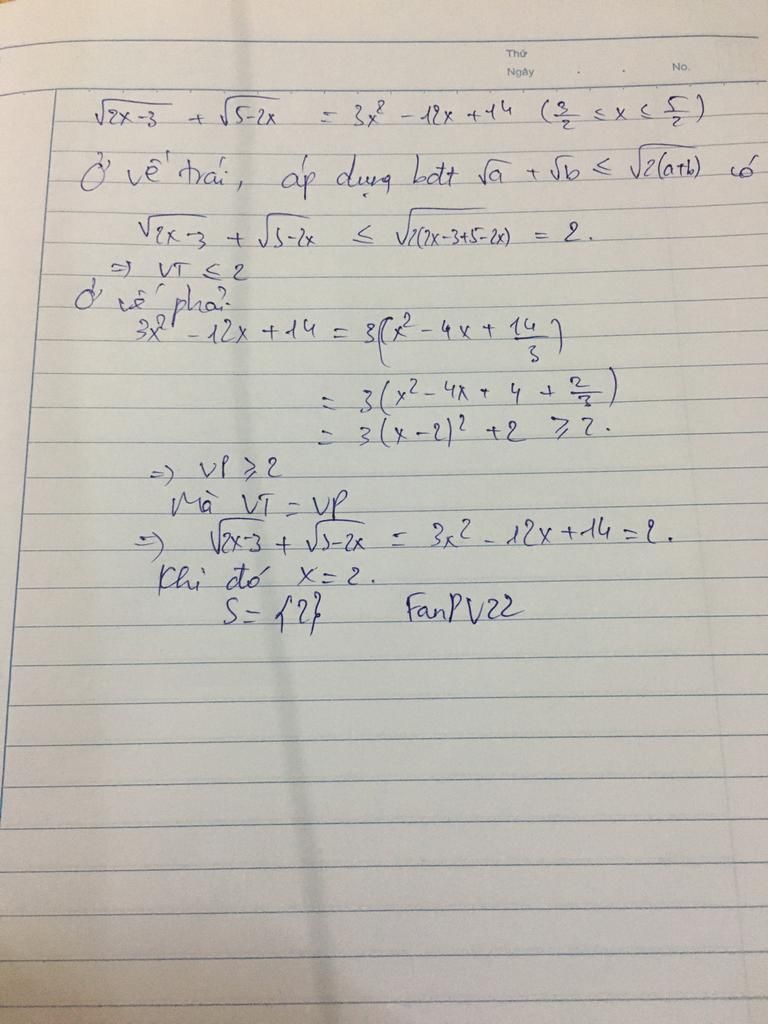 Thứ
Ngày . . No.
√(2x-3) + √(5-2x) = 3x² - 12x + 14 (3/2 ≤ x ≤ 5/2)
Ở vế trái, áp dụng bđt √a + √b ≤ √(2(a+b)) có
√(2x-3) + √(5-2x) ≤ √(2(2x-3+5-2x)) = 2.
=> VT ≤ 2
Ở vế phải
3x² - 12x + 14 = 3(x² - 4x + 14/3)
= 3(x² - 4x + 4 + 2/3)
= 3(x-2)² + 2 ≥ 2.
=> VP ≥ 2
Mà VT = VP
=> √(2x-3) + √(5-2x) = 3x² - 12x + 14 = 2.
Khi đó x = 2.
S = {2} FanPV22